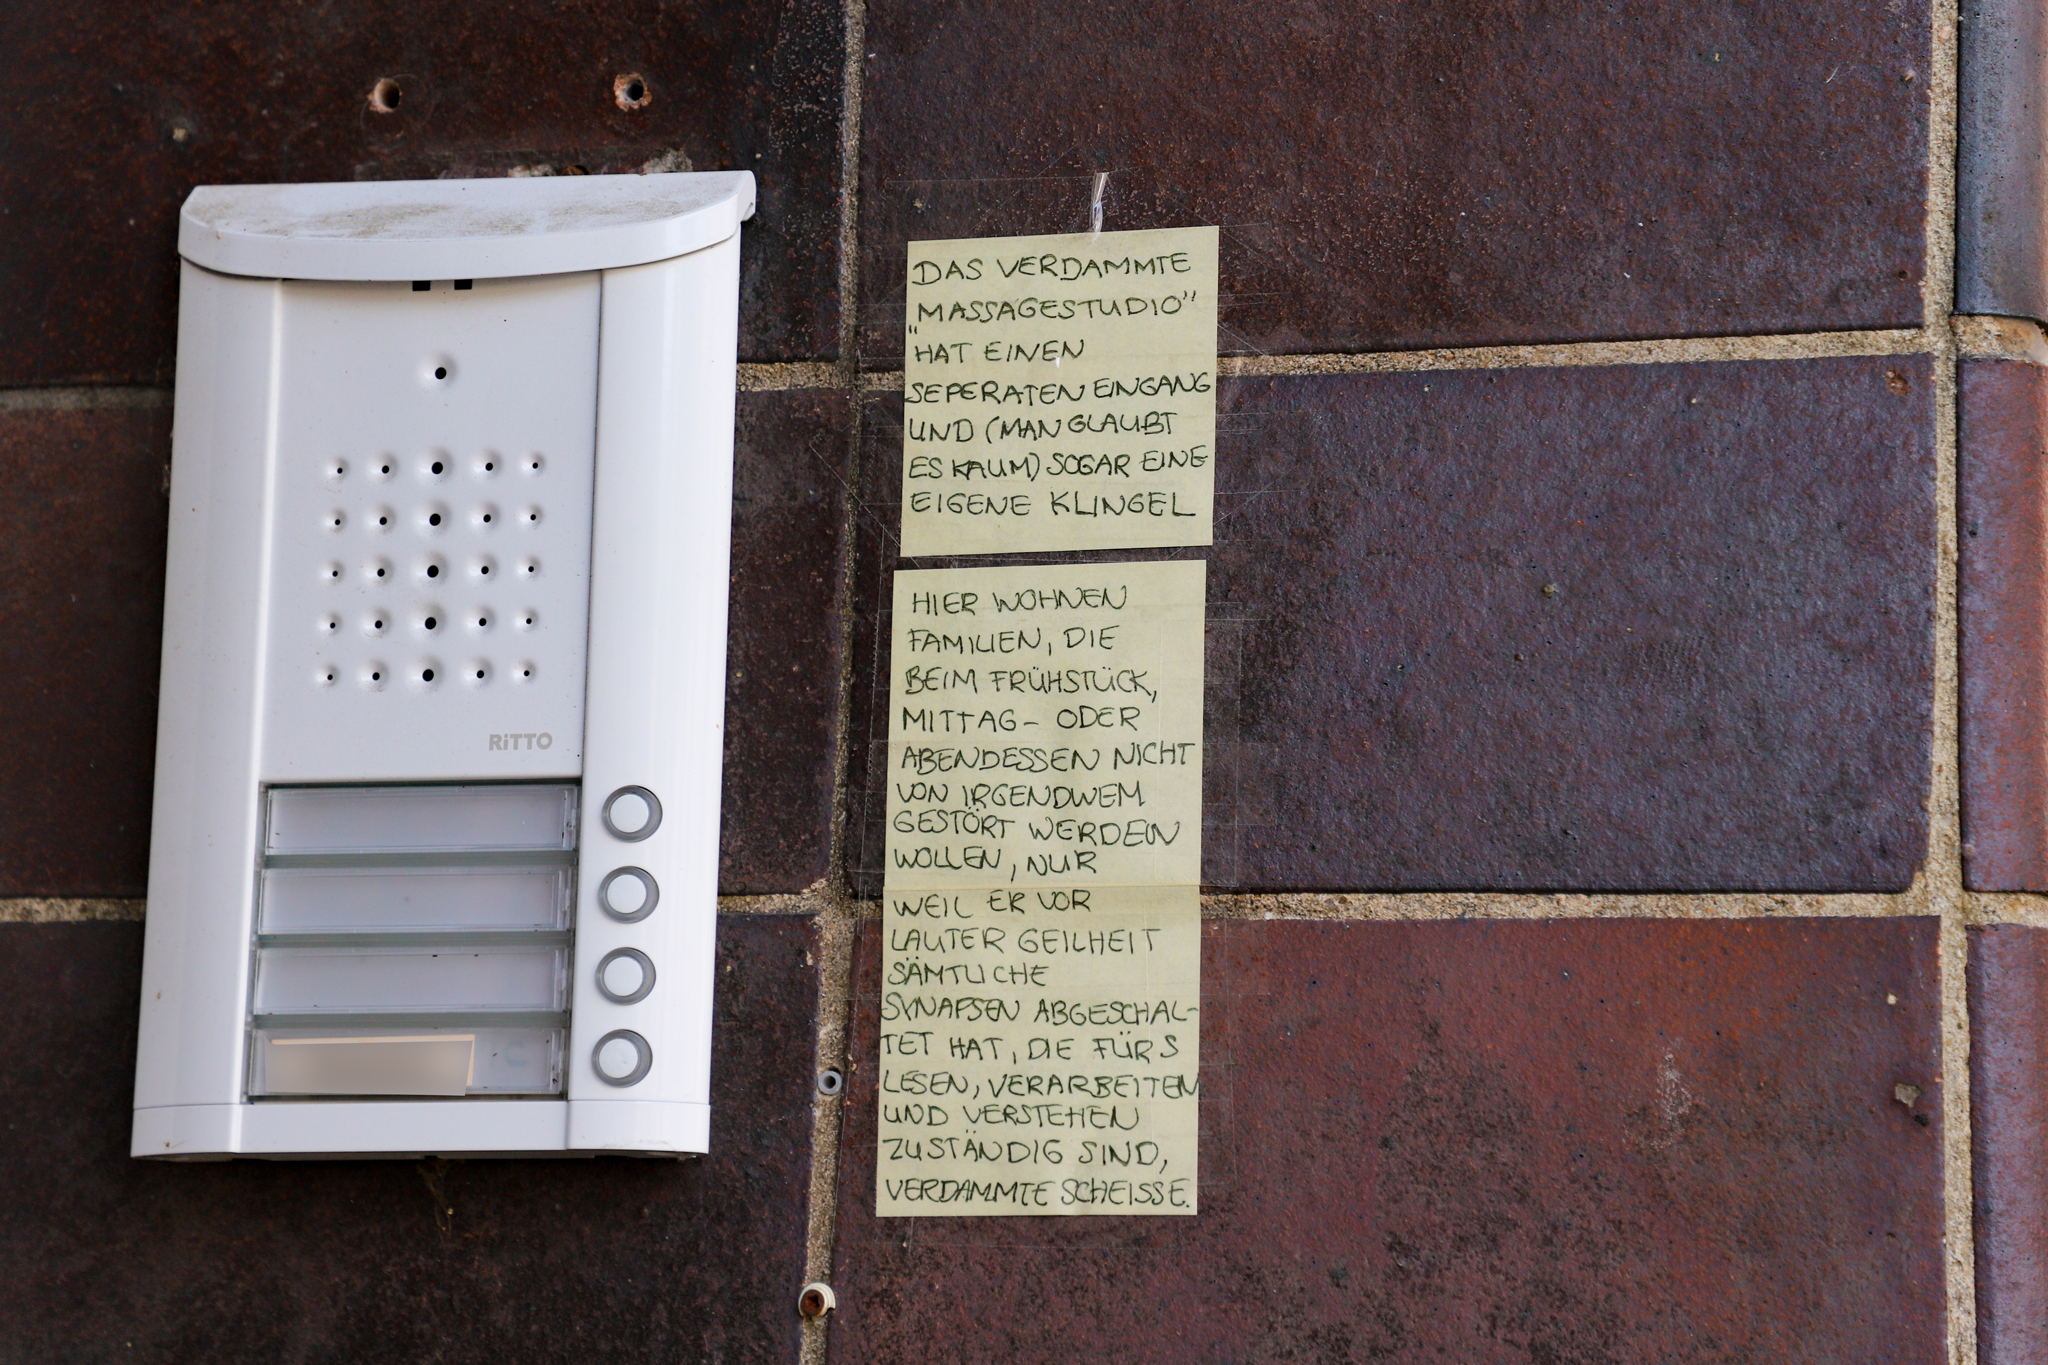 RiTTO
DAS VERDAMMTE
„MASSAGESTUDIO”
HAT EINEN
SEPERATEN EINGANG
UND (MAN GLAUBT
ES KAUM) SOGAR EINE
EIGENE KLINGEL
HIER WOHNEN
FAMILIEN, DIE
BEIM FRÜHSTÜCK,
MITTAG- ODER
ABENDESSEN NICHT
VON IRGENDWEM
GESTÖRT WERDEN
WOLLEN, NUR
WEIL ER VOR
LAUTER GEILHEIT
SÄMTLICHE
SYNAPSEN ABGESCHAL-
TET HAT, DIE FÜRS
LESEN, VERARBEITEN
UND VERSTEHEN
ZUSTÄNDIG SIND,
VERDAMMTE SCHEISSE.